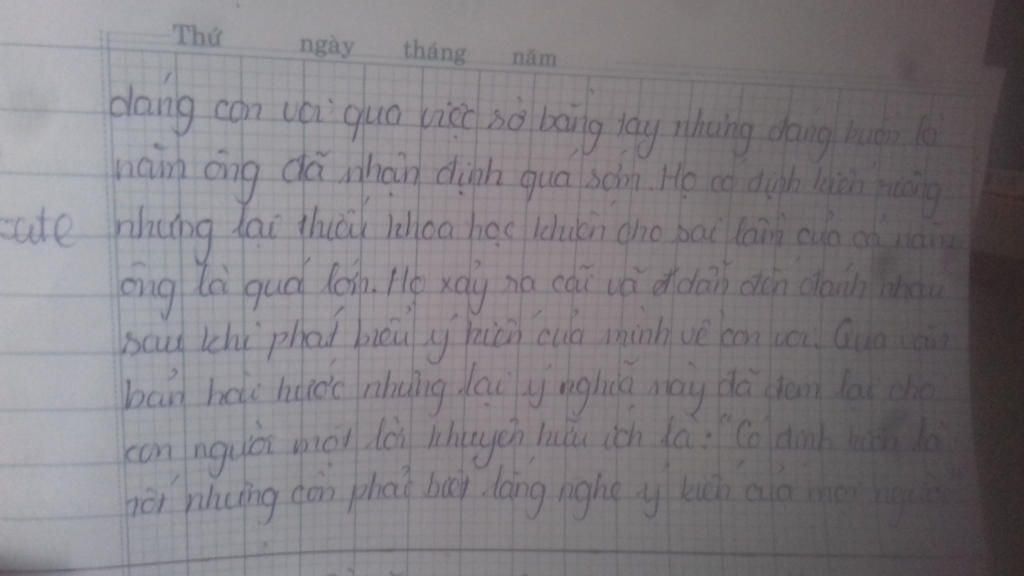 Thứ ngày tháng năm
dáng con voi qua việc sờ bằng tay nhưng đáng buồn là
năm ông đã nhận định quá sớm. Họ có định kiến riêng
cute nhưng lại thiếu khoa học khiến cho sai lầm của cả năm
ông là quá lớn. Họ xảy ra cãi vã dẫn đến đánh nhau
sau khi phát biểu ý kiến của mình về con voi. Qua văn
bản hài hước nhưng lại ý nghĩa này đã đem lại cho
con người một lời khuyên hữu ích là: "Có định kiến là
tốt nhưng cần phải biết lắng nghe ý kiến của mọi người"